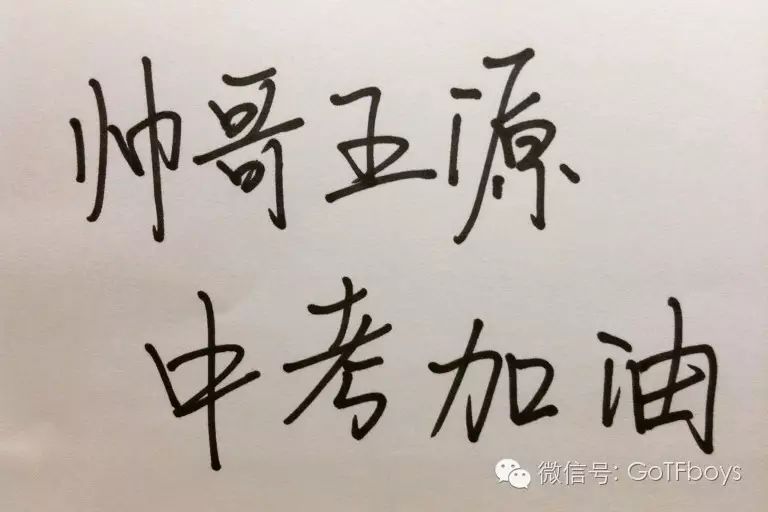 帅哥王源
中考加油
微信号: GoTFboys